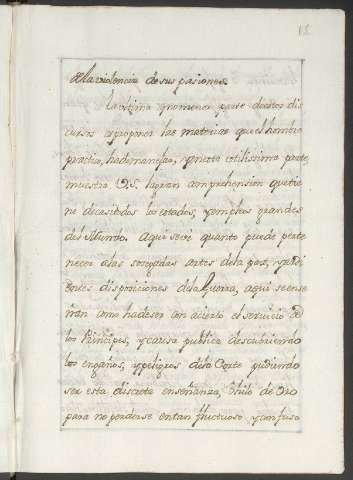 18.
de la violencia de sus pasiones.
La vltima y no menor parte de estos dis
cursos a proponer las materias que el hombre
practico, ha de manejar, y en esta vtilissima parte
muestra V.S. la gran comprehension que tie
ne de casi todos los estados, y empleos grandes
del Mundo. Aqui se vè quanto puede perte
necer a las sosegadas artes de la paz, y
disposiciones de la Guerra, aqui se ense
ñan como ha de ser con acierto el servicio de
los Principes, y causa publica descubriendo
los engaños, y peligros de la Corte pudiendo
ser esta discreta enseñanza, Hilo de Oro
para no perderse en tan fluctuoso, y confuso